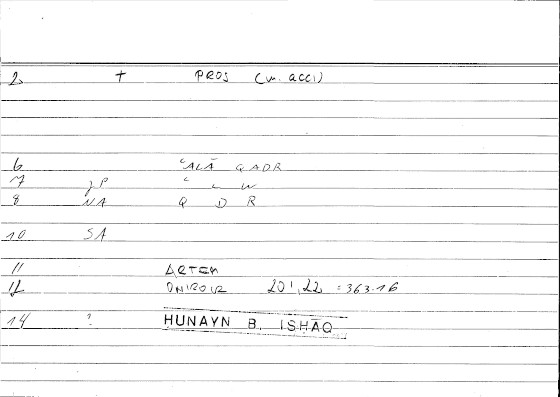 2. + PROS (w. acci)
6 ʿALĀ QADR
7 JP ʿ L W
8 NA Q D R
10 SA
11 ARTEM
12 ONIROCR 201,22 = 363.16
14 ? HUNAYN B. ISHĀQ